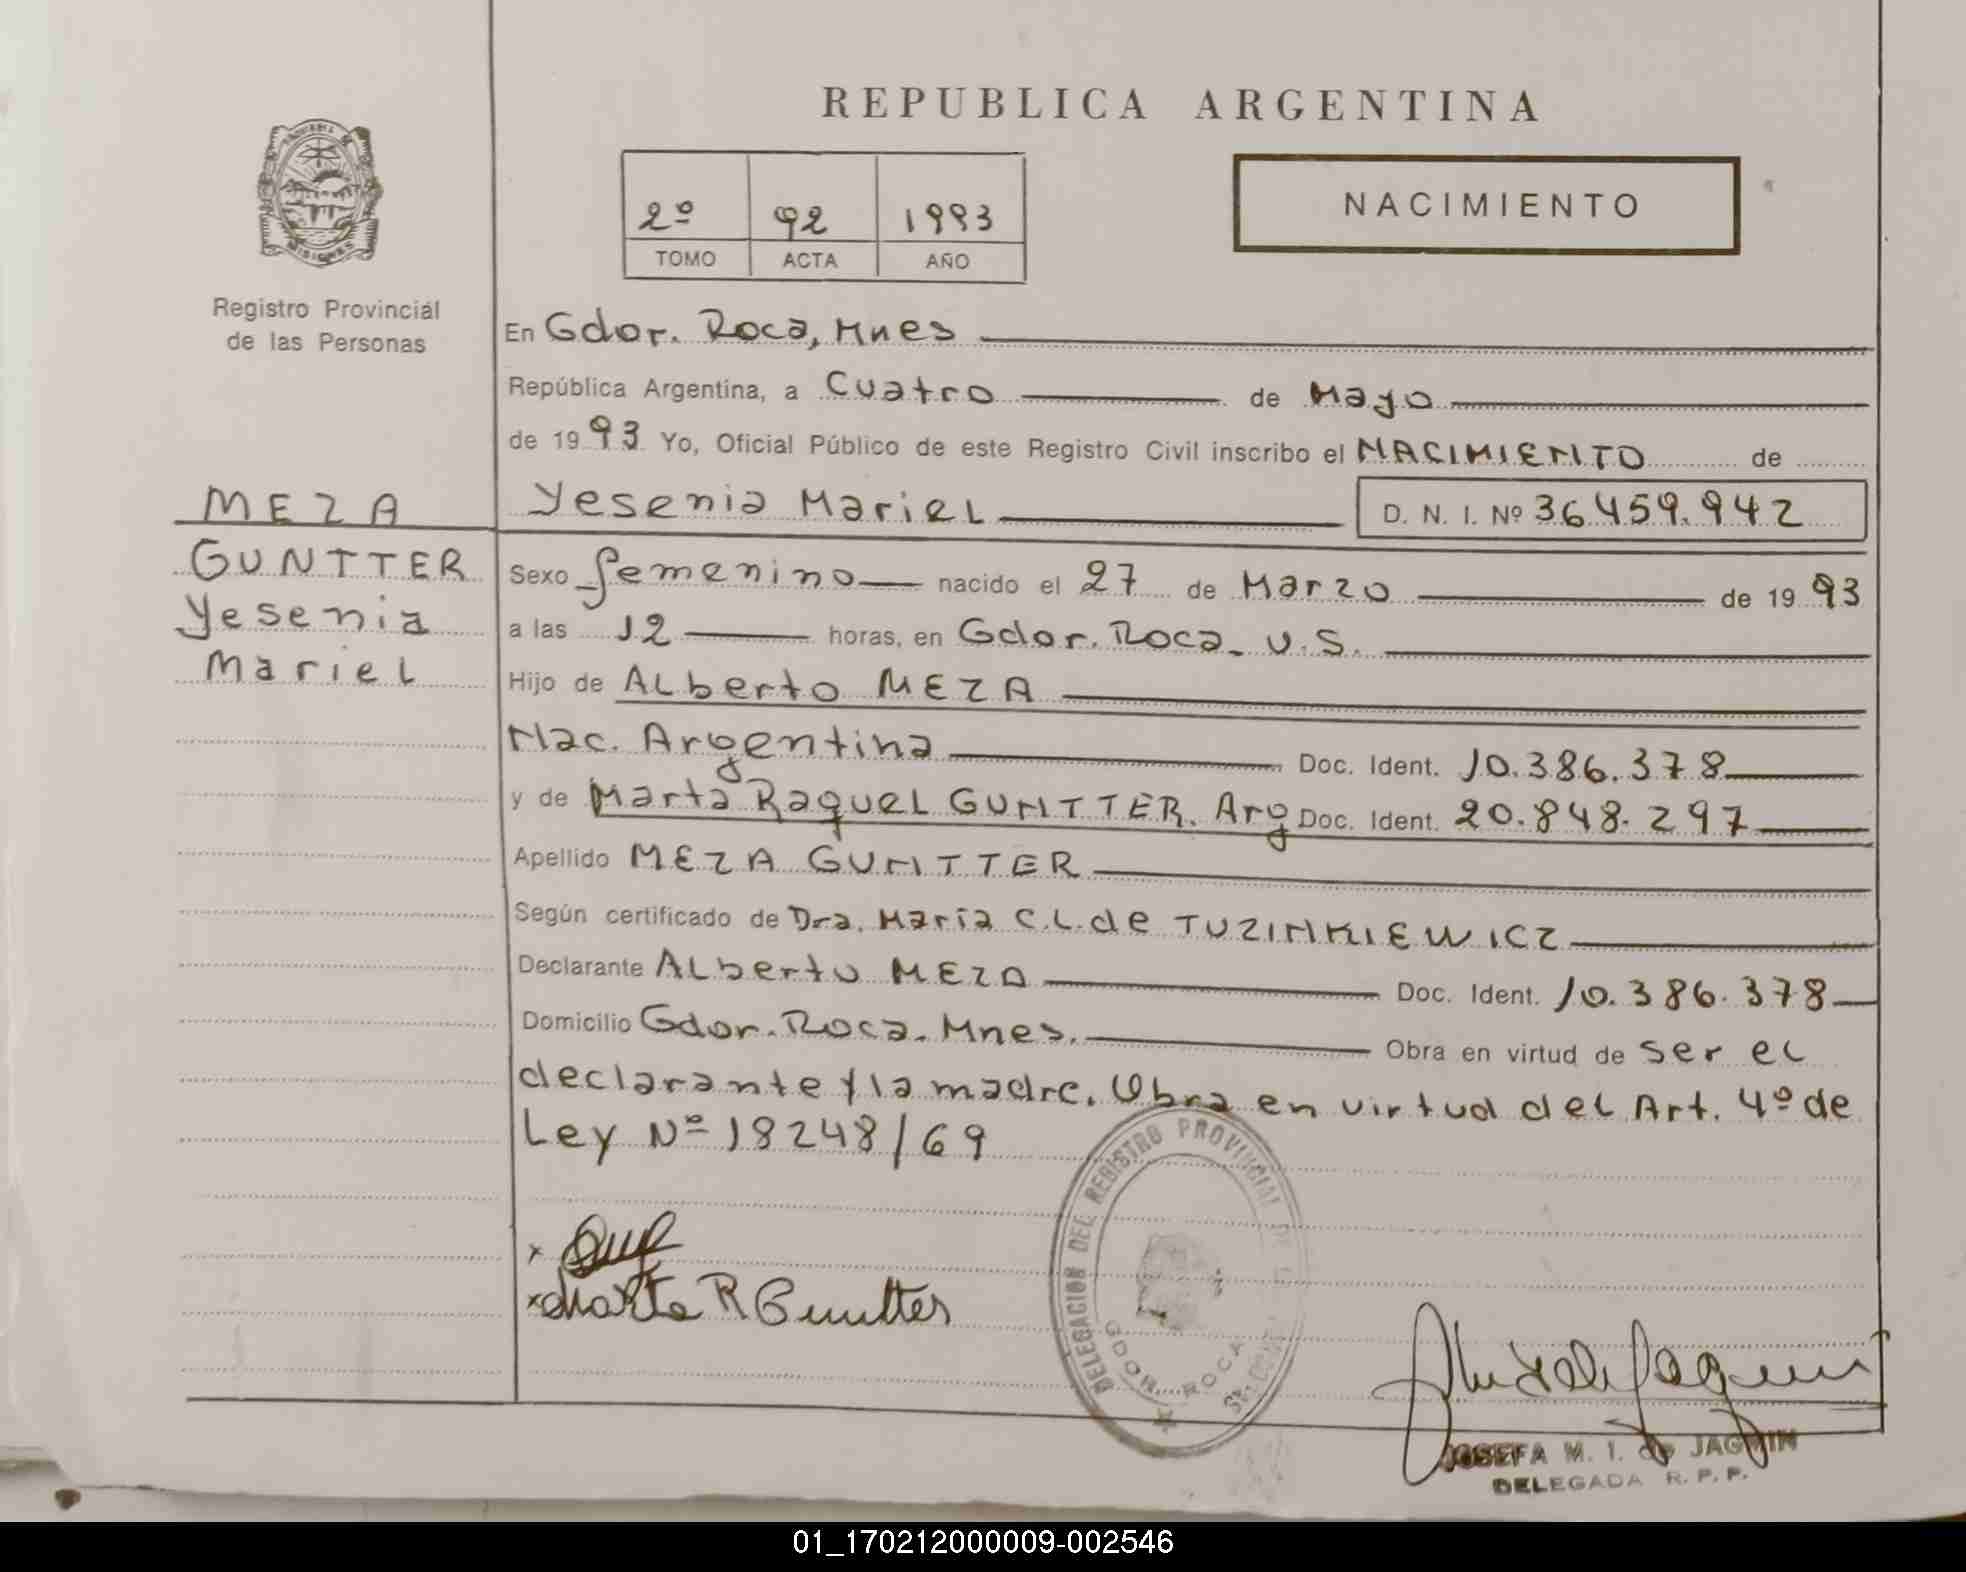 REPUBLICA ARGENTINA
2º 92 1993
TOMO ACTA AÑO
NACIMIENTO
Registro Provincial
de las Personas
En Gdor. Roca, Mnes
República Argentina, a Cuatro de Mayo
de 1993 Yo, Oficial Público de este Registro Civil inscribo el NACIMIENTO de
MEZA
GUNTTER
Yesenia
Mariel
Yesenia Mariel D. N. I. Nº 36.459.942
Sexo femenino nacido el 27 de Marzo de 1993
a las 12 horas, en Gdor. Roca. U.S.
Hijo de Alberto MEZA
Nac. Argentina Doc. Ident. 10.386.378
y de Marta Raquel GUNTTER. Arg Doc. Ident. 20.848.297
Apellido MEZA GUNTTER
Según certificado de Dra. María C.L. de TUZINKIEWICZ
Declarante Alberto MEZA Doc. Ident. 10.386.378
Domicilio Gdor. Roca. Mnes. Obra en virtud de ser el
declarante y la madre. Obra en virtud del Art. 4º de
Ley Nº 18248/69
x
x Marta R Guntter
DELEGACION DEL REGISTRO PROVINCIAL DE
GDOR. ROCA
JOSEFA M. I. de JAGMIN
DELEGADA R. P. P.
01_170212000009-002546